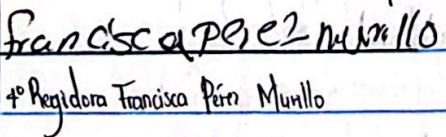 francisca perez murillo
4º Regidora Francisca Pérez Murillo